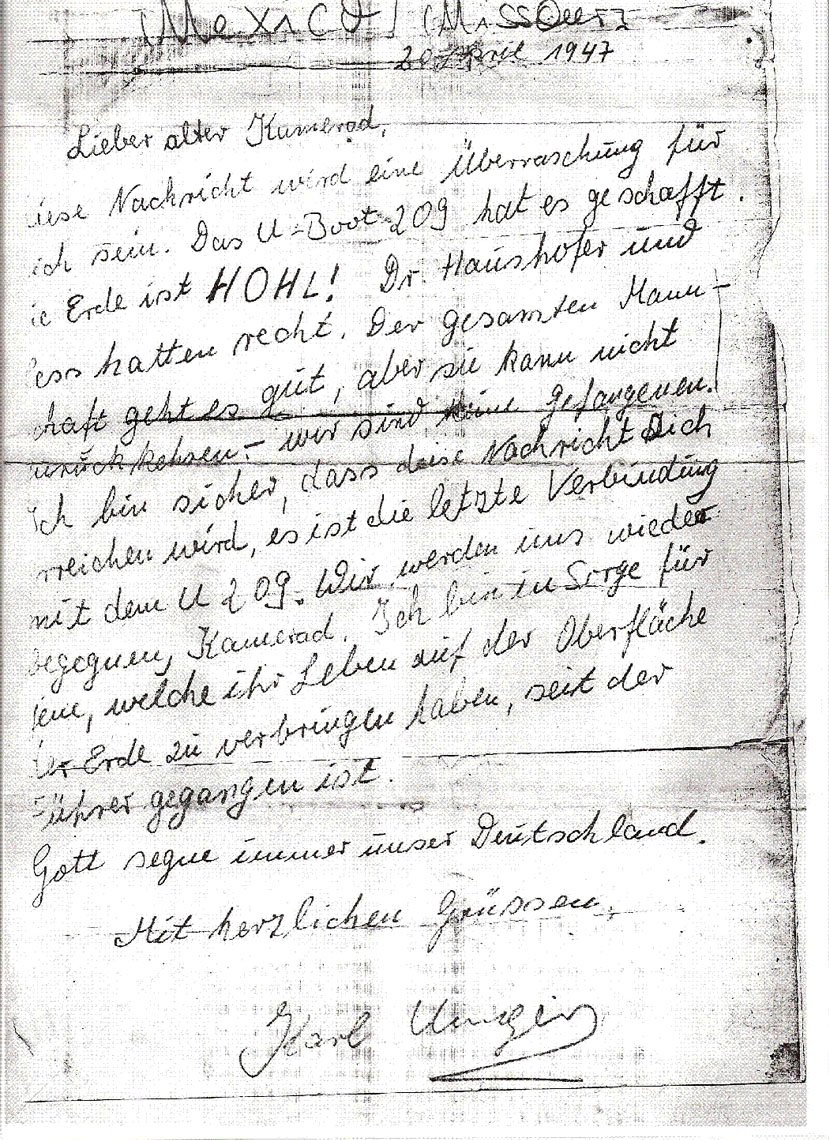 (Mexico) (Missouri
20 April 1947
Lieber alter Kamerad,
iese Nachricht wird eine Überraschung für
ich sein. Das U-Boot 209 hat es geschafft.
ie Erde ist HOHL! Dr. Haushofer und
ess hatten recht. Der gesamten Mann-
chaft geht es gut, aber sie kann nicht
urückkehren. – wir sind keine Gefangenen.
Ich bin sicher, dass diese Nachricht Dich
rreichen wird, es ist die letzte Verbindung
mit dem U 209. Wir werden uns wieder
begegnen, Kamerad. Ich bin in Sorge für
jene, welche ihr Leben auf der Oberfläche
der Erde zu verbringen haben, seit der
Führer gegangen ist.
Gott segne immer unser Deutschland.
Mit herzlichen Grüssen,
Karl Unger